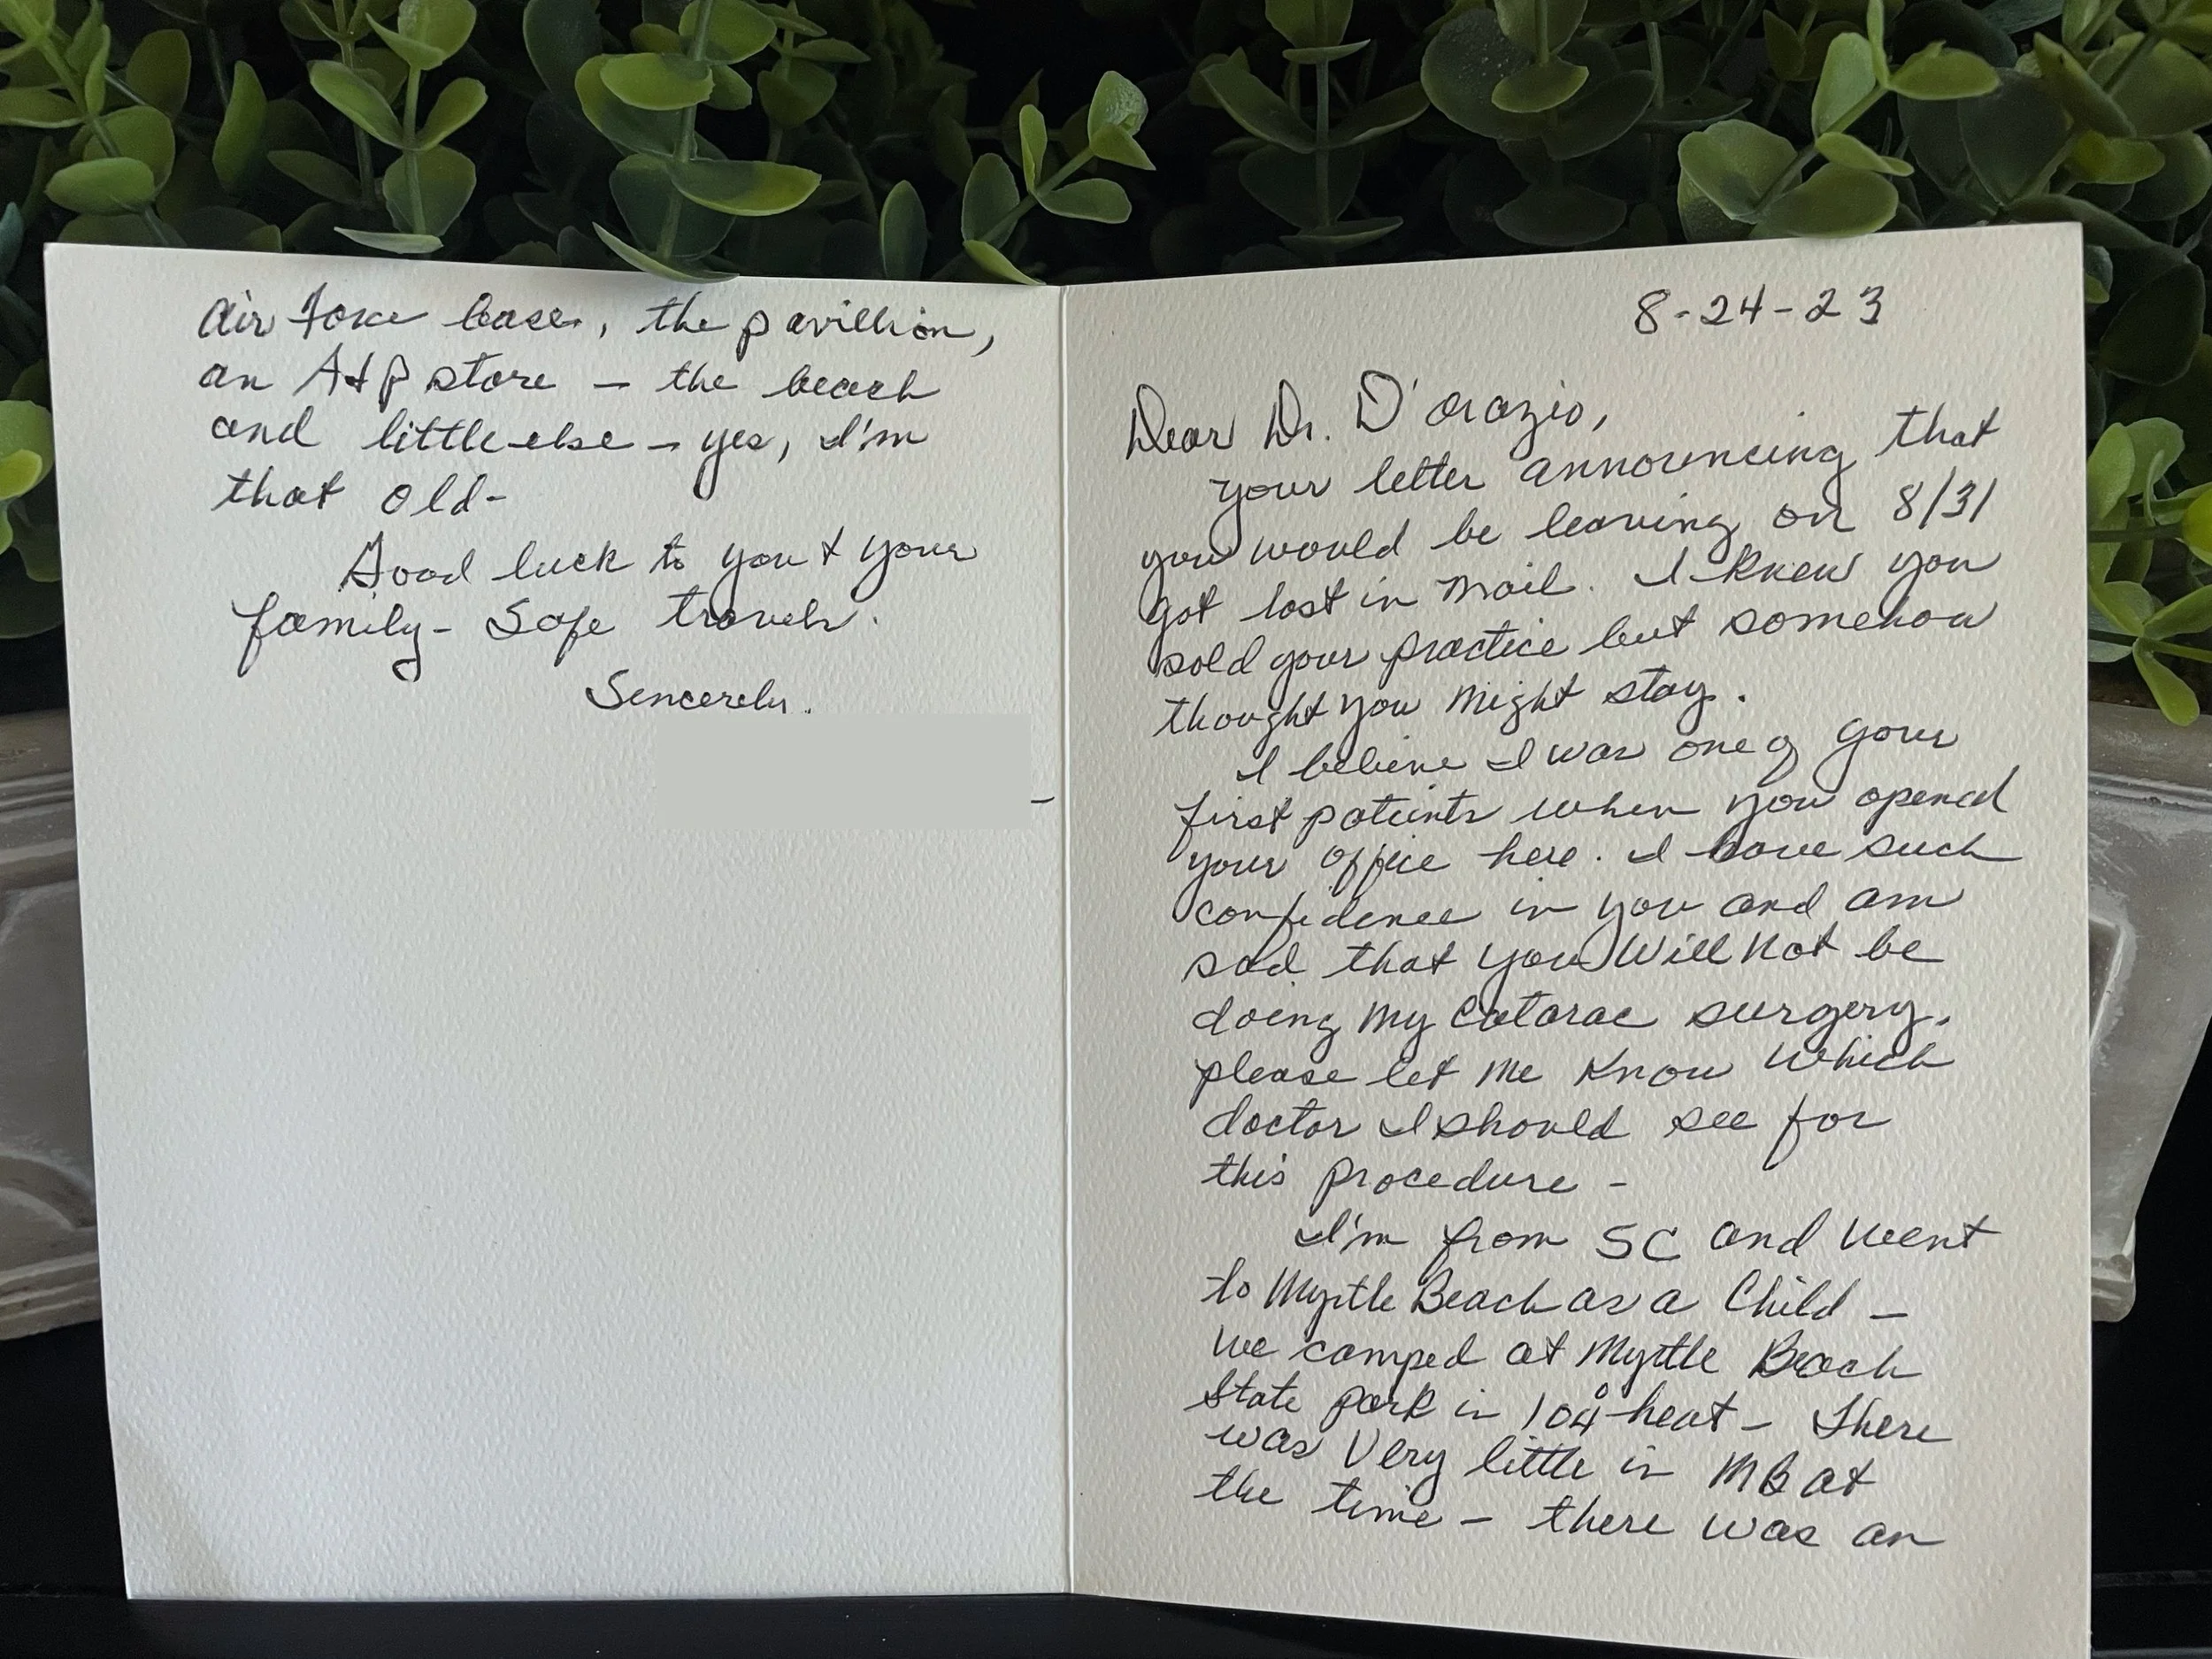 8-24-23
Dear Dr. D'Orazio,
your letter announcing that
you would be leaving on 8/31
got lost in mail. I knew you
sold your practice but somehow
thought you might stay.
I believe I was one of your
first patients when you opened
your office here. I have such
confidence in you and am
sad that you will not be
doing my Catarac surgery.
please let me know which
doctor I should see for
this procedure -
I'm from SC and went
to Myrtle Beach as a Child -
we camped at Myrtle Beach
State park in 104° heat - There
was very little in MB at
the time - there was an
air force base, the pavillion,
an A+P store - the beach
and little else - yes, I'm
that old -
Good luck to you + your
family - Safe travels.
Sincerely.